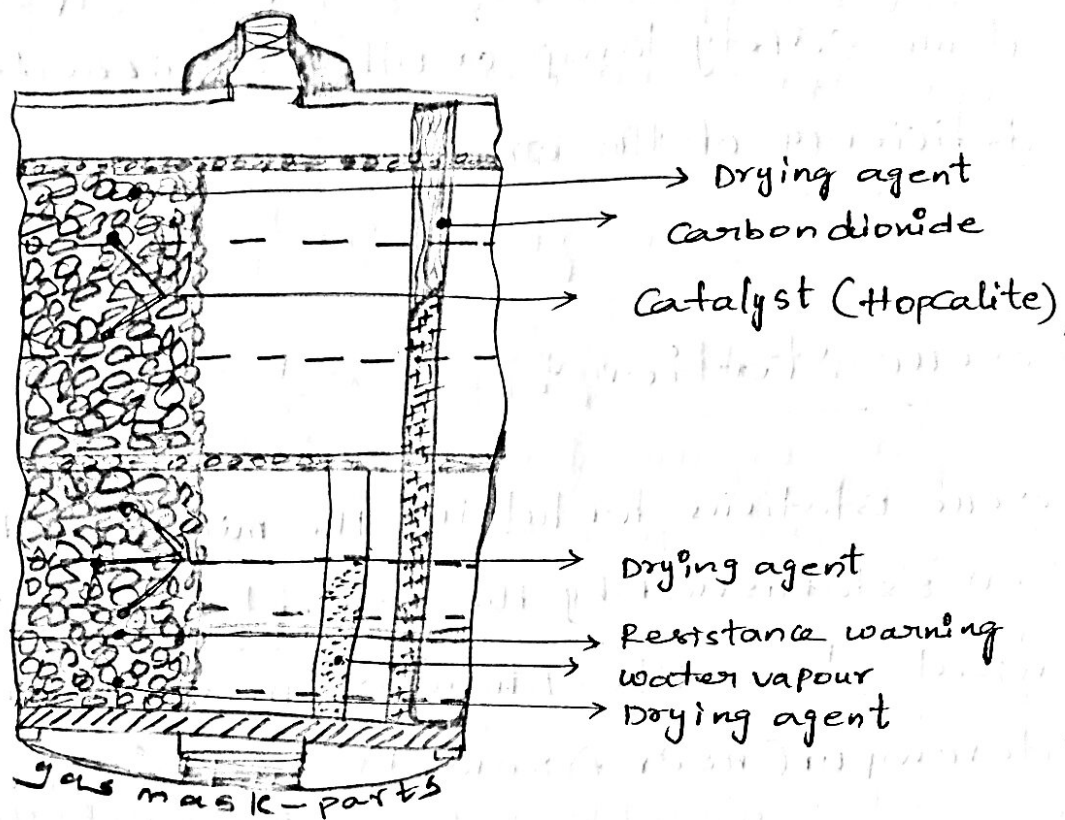 Drying agent
Carbondioxide
Catalyst (Hopcalite)
Drying agent
Resistance warning
water vapour
Drying agent
gas mask-parts